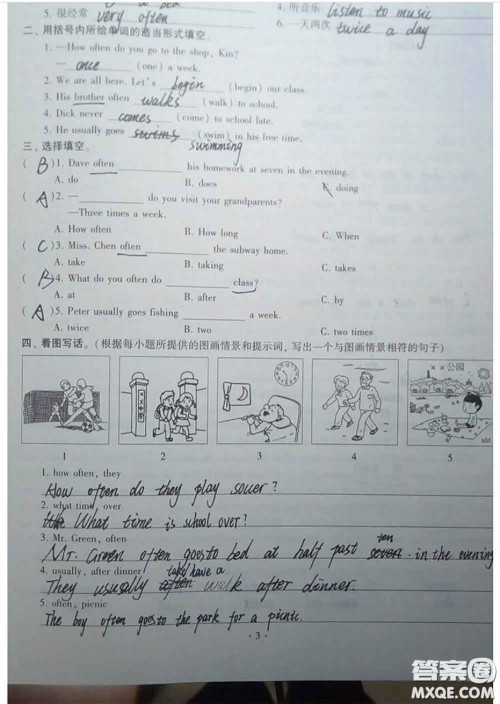 5. 很经常 very often 4. 听音乐 listen to music
6. 一天两次 twice a day
二. 用括号内所给单词的适当形式填空。
1. —How often do you go to the shop, Kim?
— once (one) a week.
2. We are all here. Let's begin (begin) our class.
3. His brother often walks (walk) to school.
4. Dick never comes (come) to school late.
5. He usually goes swims (swim) in his free time.
swimming
三. 选择填空。
( B )1. Dave often his homework at seven in the evening.
A. do B. does C. doing
( A )2. — do you visit your grandparents?
—Three times a week.
A. How often B. How long C. When
( C )3. Miss. Chen often the subway home.
A. take B. taking C. takes
( B )4. What do you often do class?
A. at B. after C. by
( A )5. Peter usually goes fishing a week.
A. twice B. two C. two times
四. 看图写话。(根据每小题所提供的图画情景和提示词, 写出一个与图画情景相符的句子)
××公园
1 2 3 4 5
1. how often, they
How often do they play souer?
2. what time, over
What time is school over?
3. Mr. Green, often
ten
Mr. Green often goes to bed at half past seven in the evening
4. usually, after dinner take have a
They usually often walk after dinner.
5. often, picnic
The boy often goes to the park for a picnic.
· 3 ·
答案圈
MXQE.COM